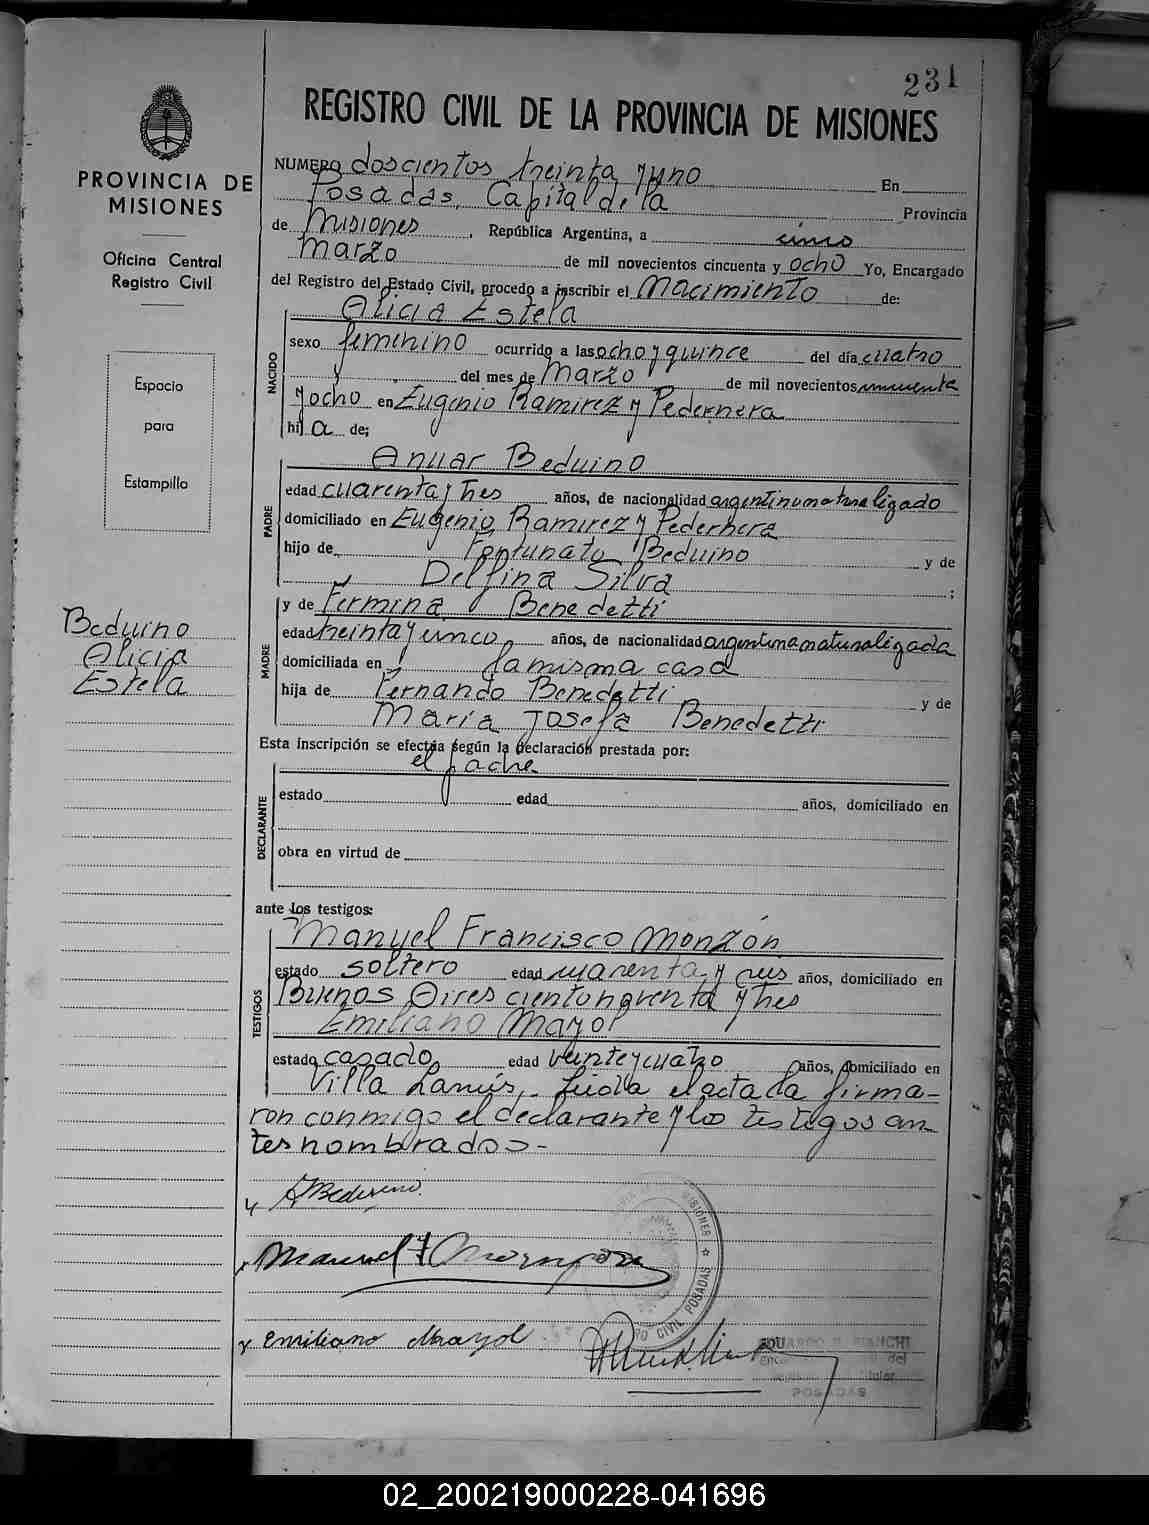 231
REGISTRO CIVIL DE LA PROVINCIA DE MISIONES
PROVINCIA DE
MISIONES
Oficina Central
Registro Civil
Espacio
para
Estampilla
Beduino
Alicia
Estela
NUMERO doscientos treinta y uno En
Posadas, Capital de la Provincia
de Misiones, República Argentina, a cinco
Marzo de mil novecientos cincuenta y ocho Yo, Encargado
del Registro del Estado Civil, procedo a inscribir el Nacimiento de:
Alicia Estela
NACIDO
sexo femenino ocurrido a las ocho y quince del día cuatro
del mes de Marzo de mil novecientos cincuenta
y ocho en Eugenio Ramirez y Pedernera
hij a de;
Anuar Beduino
PADRE
edad cuarenta y tres años, de nacionalidad argentino naturalizado
domiciliado en Eugenio Ramirez y Pedernera
hijo de Fortunato Beduino y de
Delfina Silva ;
y de Fermina Benedetti
MADRE
edad treinta y cinco años, de nacionalidad argentina naturalizada
domiciliada en la misma casa
hija de Fernando Benedetti y de
María Josefa Benedetti
Esta inscripción se efectúa según la declaración prestada por:
el padre
DECLARANTE
estado edad años, domiciliado en
obra en virtud de
ante los testigos:
Manuel Francisco Monzón
TESTIGOS
estado soltero edad cuarenta y seis años, domiciliado en
Buenos Aires ciento noventa y tres
Emiliano Mayol
estado casado edad veinte y cuatro años, domiciliado en
Villa Lanús, leída el acta la firma-
ron conmigo el declarante y los testigos an-
tes nombrados-
A Beduino
Manuel F Monzon
MISIONES ☆
CIVIL POSADAS
y Emiliano Mayol
EDUARDO BIANCHI
POSADAS
02_200219000228-041696